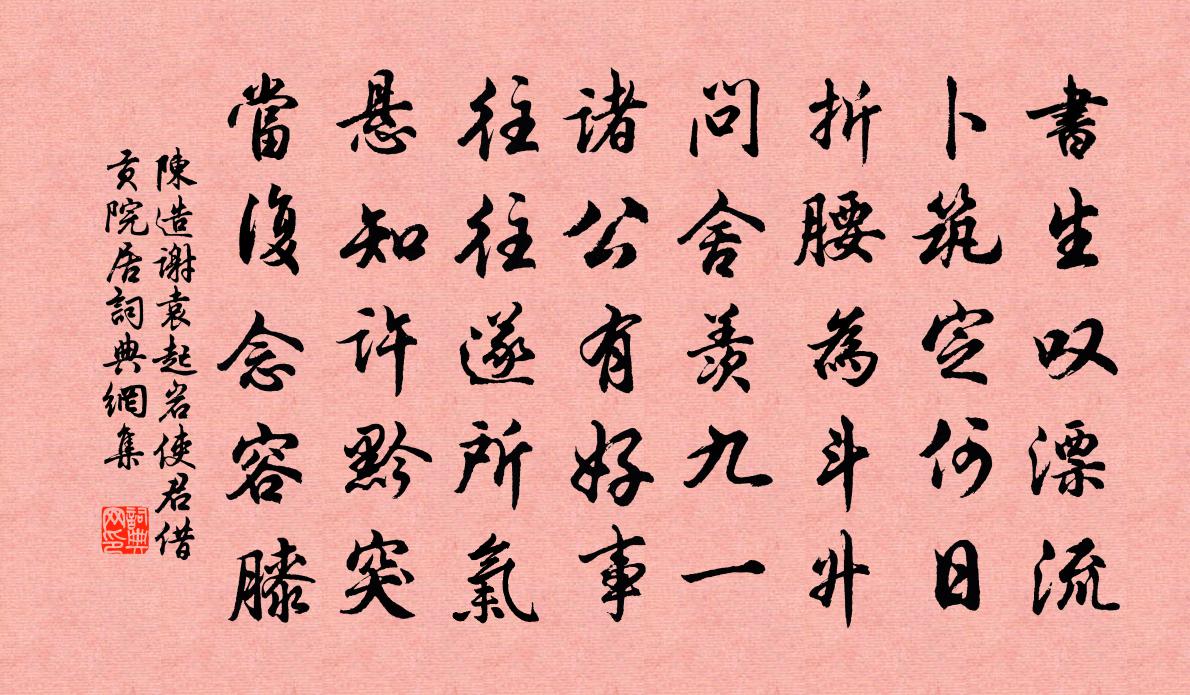 書生叹漂流
卜筑定何日
折腰為斗升
問舍羨九一
诸公有好事
往往遂所氣
悬知许黔突
當復念容膝
陳造謝袁起岩使君借
贡院居詞典網集
詞典网印